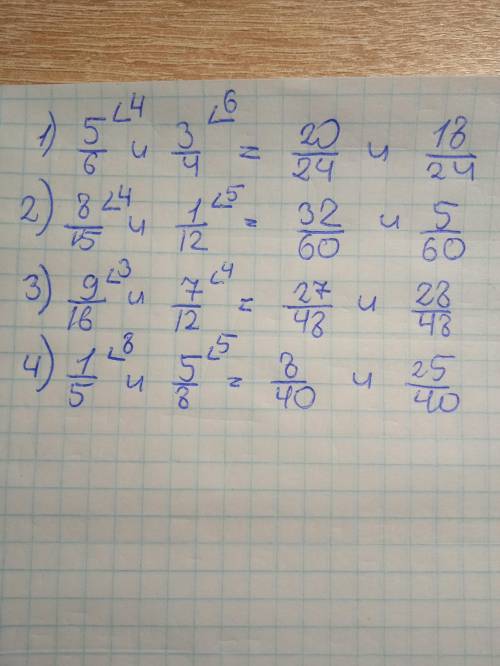 1) 5/6 ⌞4 и 3/4 ⌞6 = 20/24 и 18/24
2) 8/15 ⌞4 и 1/12 ⌞5 = 32/60 и 5/60
3) 9/16 ⌞3 и 7/12 ⌞4 = 27/48 и 28/48
4) 1/5 ⌞8 и 5/8 ⌞5 = 8/40 и 25/40